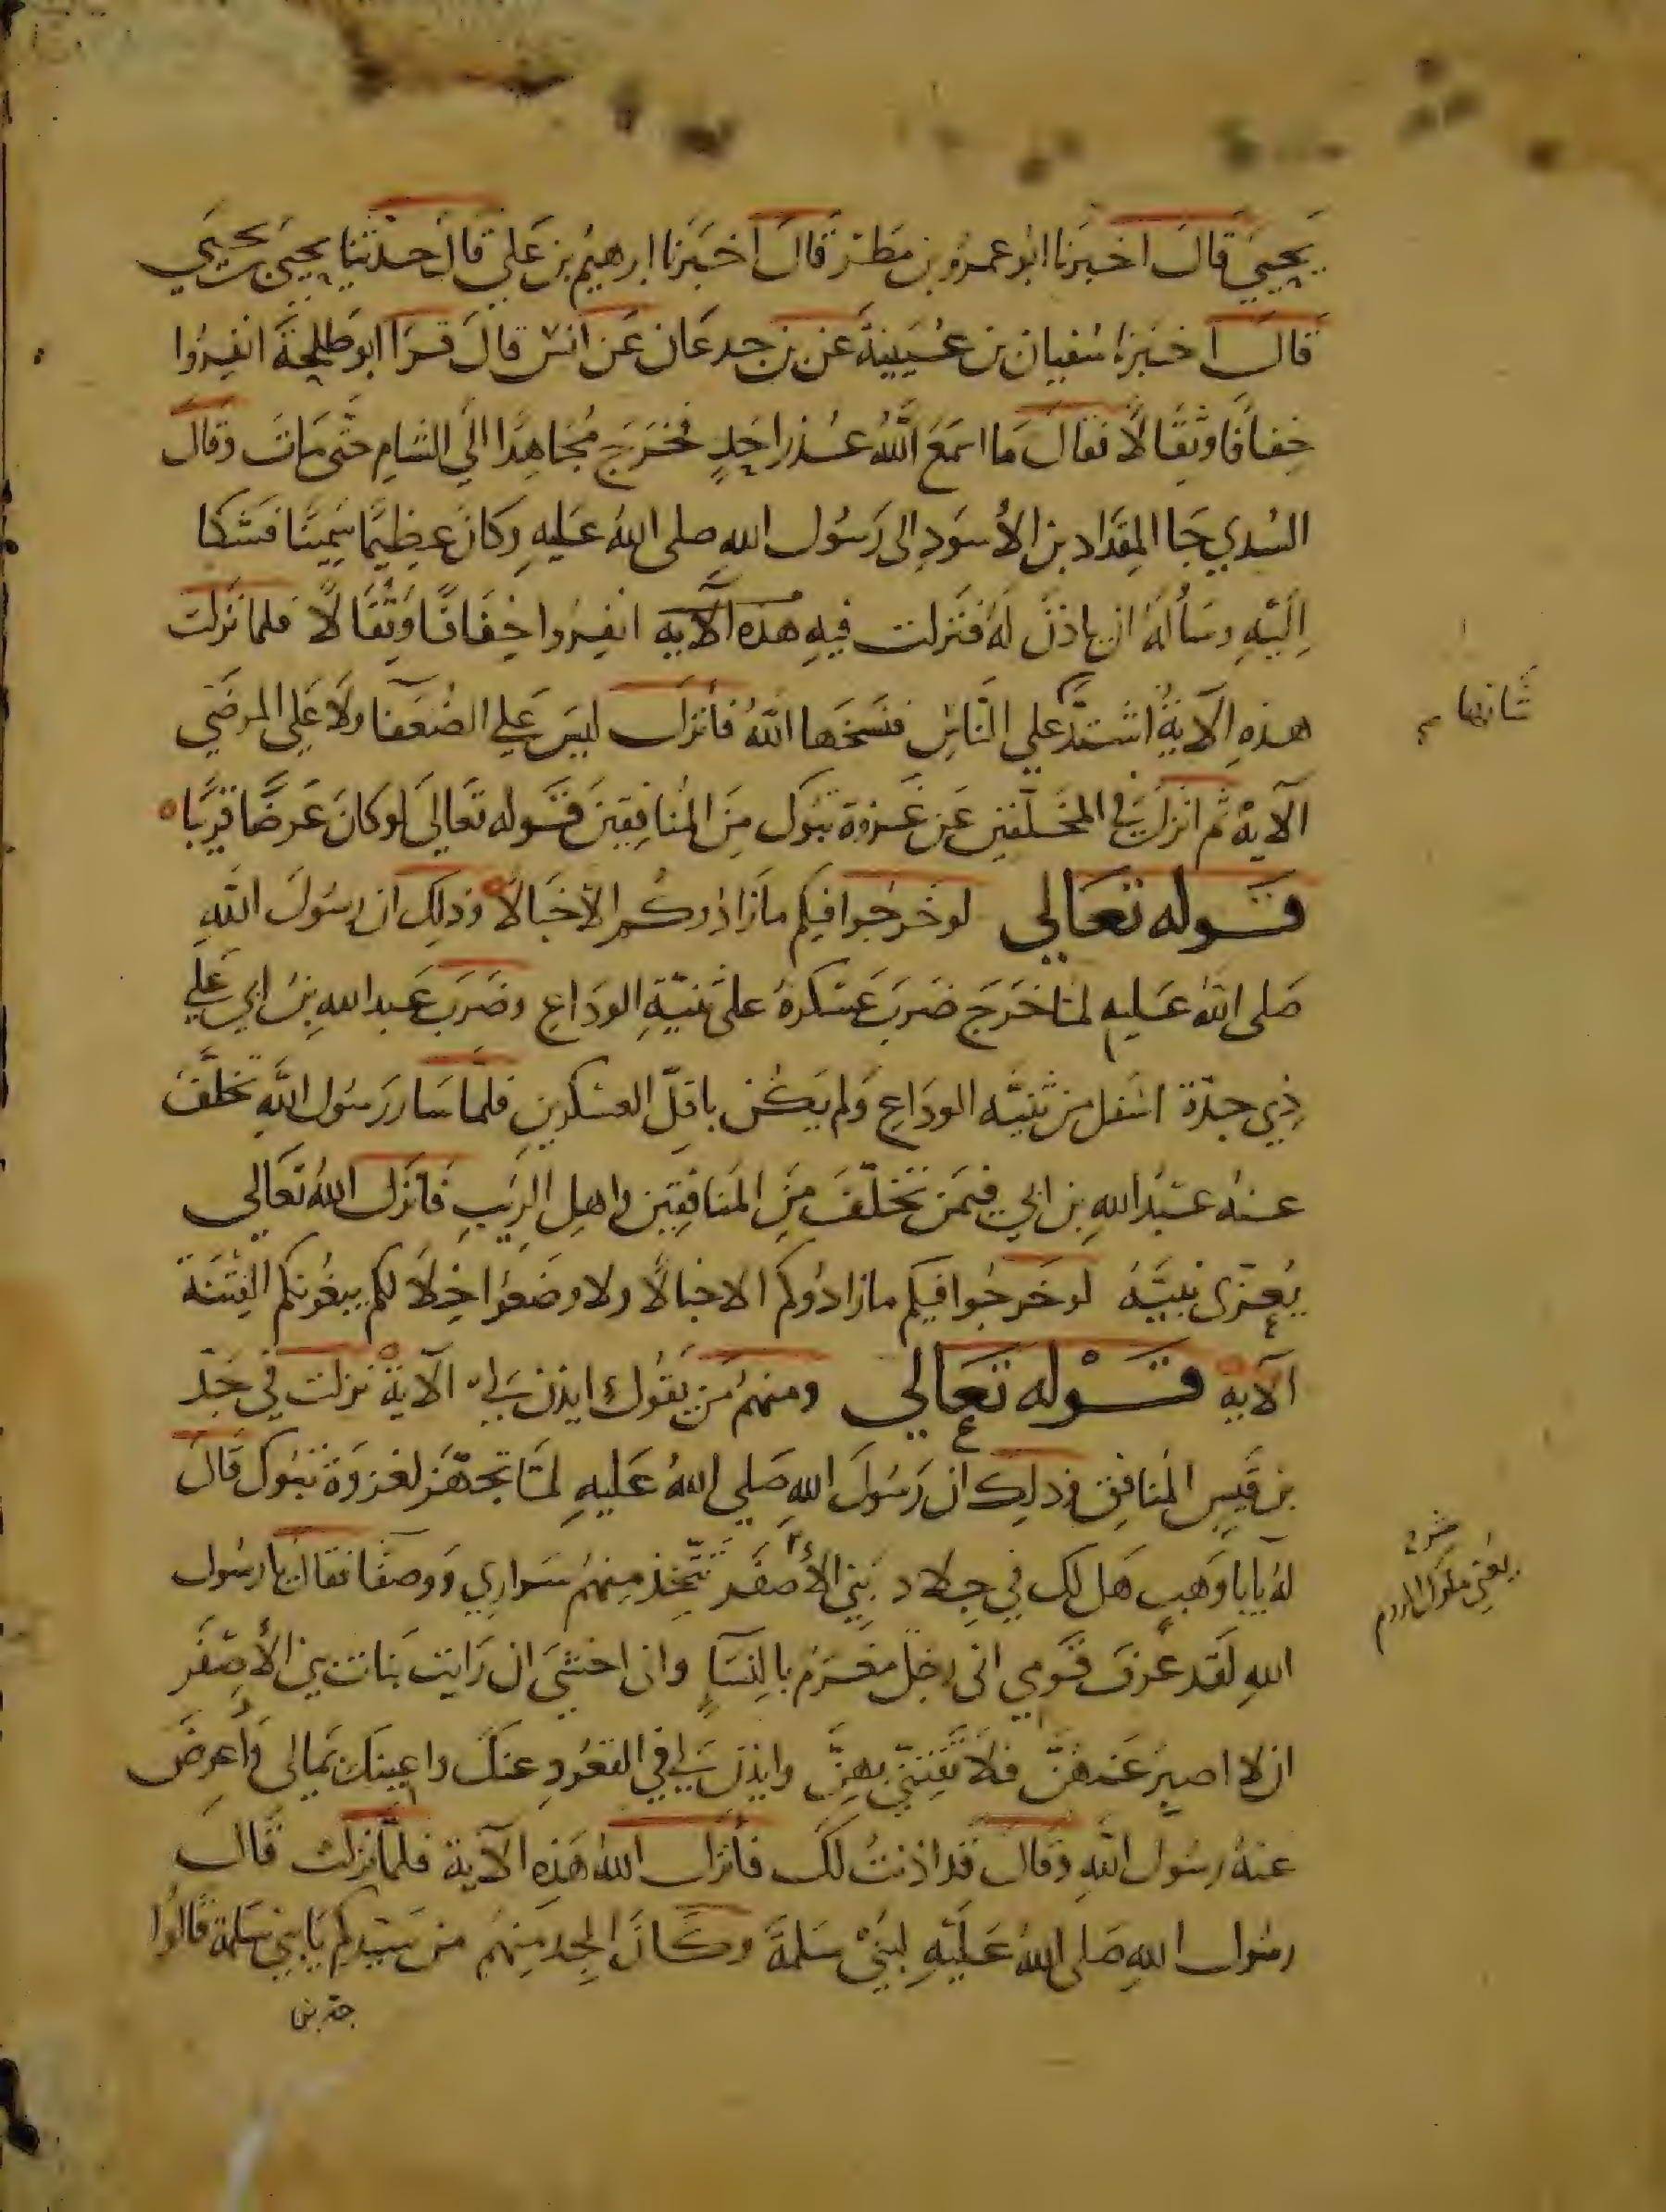 يحيى قال اخبرنا ابو عمرو بن مطر قال اخبرنا ابرهيم بن علي قال حدثنا يحيى بن يحيى
قال اخبرنا سفيان بن عيينة عن بن جدعان عن انس قال قرا ابو طلحة انفروا
خفافا وثقالا فقال ما اسمع الله عذر احد فخرج مجاهدا الى الشام حتى مات وقال
السدي جا المقداد بن الأسود الى رسول الله صلى الله عليه وكان عظيما سمينا فشكا
اليه وسأله ان ياذن له فنزلت فيه هذه الآية انفروا خفافا وثقالا فلما نزلت
هذه الآية اشتد على الناس فنسخها الله فأنزل ليس على الضعفا ولا على المرضى
شانها
الآية ثم انزل في المخلفين عن غزوة تبوك من المنافقين قوله تعالى لو كان عرضا قريبا
قوله تعالى لو خرجوا فيكم ما زادوكم الا خبالا وذلك ان رسول الله
صلى الله عليه لما خرج ضرب عسكره على ثنية الوداع وضرب عبد الله بن ابي على
ذي جدة اسفل من ثنية الوداع ولم يكن باقل العسكرين فلما سار رسول الله تخلف
عنه عبد الله بن ابي فيمن تخلف من المنافقين واهل الريب فانزل الله تعالى
يعزى نبيه لو خرجوا فيكم ما زادوكم الا خبالا ولاوضعوا خلالكم يبغونكم الفتنة
الآية قوله تعالى ومنهم من يقول ايذن لي الآية نزلت في جد
بن قيس المنافق وذلك ان رسول الله صلى الله عليه لما تجهز لغزوة تبوك قال
له يابا وهب هل لك في جلاد بني الأصفر تتخذ منهم سراري ووصفا فقال يا رسول
يعني ملوك الروم
الله لقد عرف قومي انى رجل مغرم بالنسآ وانى اخشى ان رايت بنات بني الأصفر
ان لا اصبر عنهن فلا تفتني بهن وايذن لي في القعود عنك واعينك بمالى فأعرض
عنه رسول الله وقال قد اذنت لك فأنزل الله هذه الآية فلما نزلت قال
رسول الله صلى الله عليه لبني سلمة وكان الجد منهم من سيدكم يا بني سلمة قالوا
جد بن